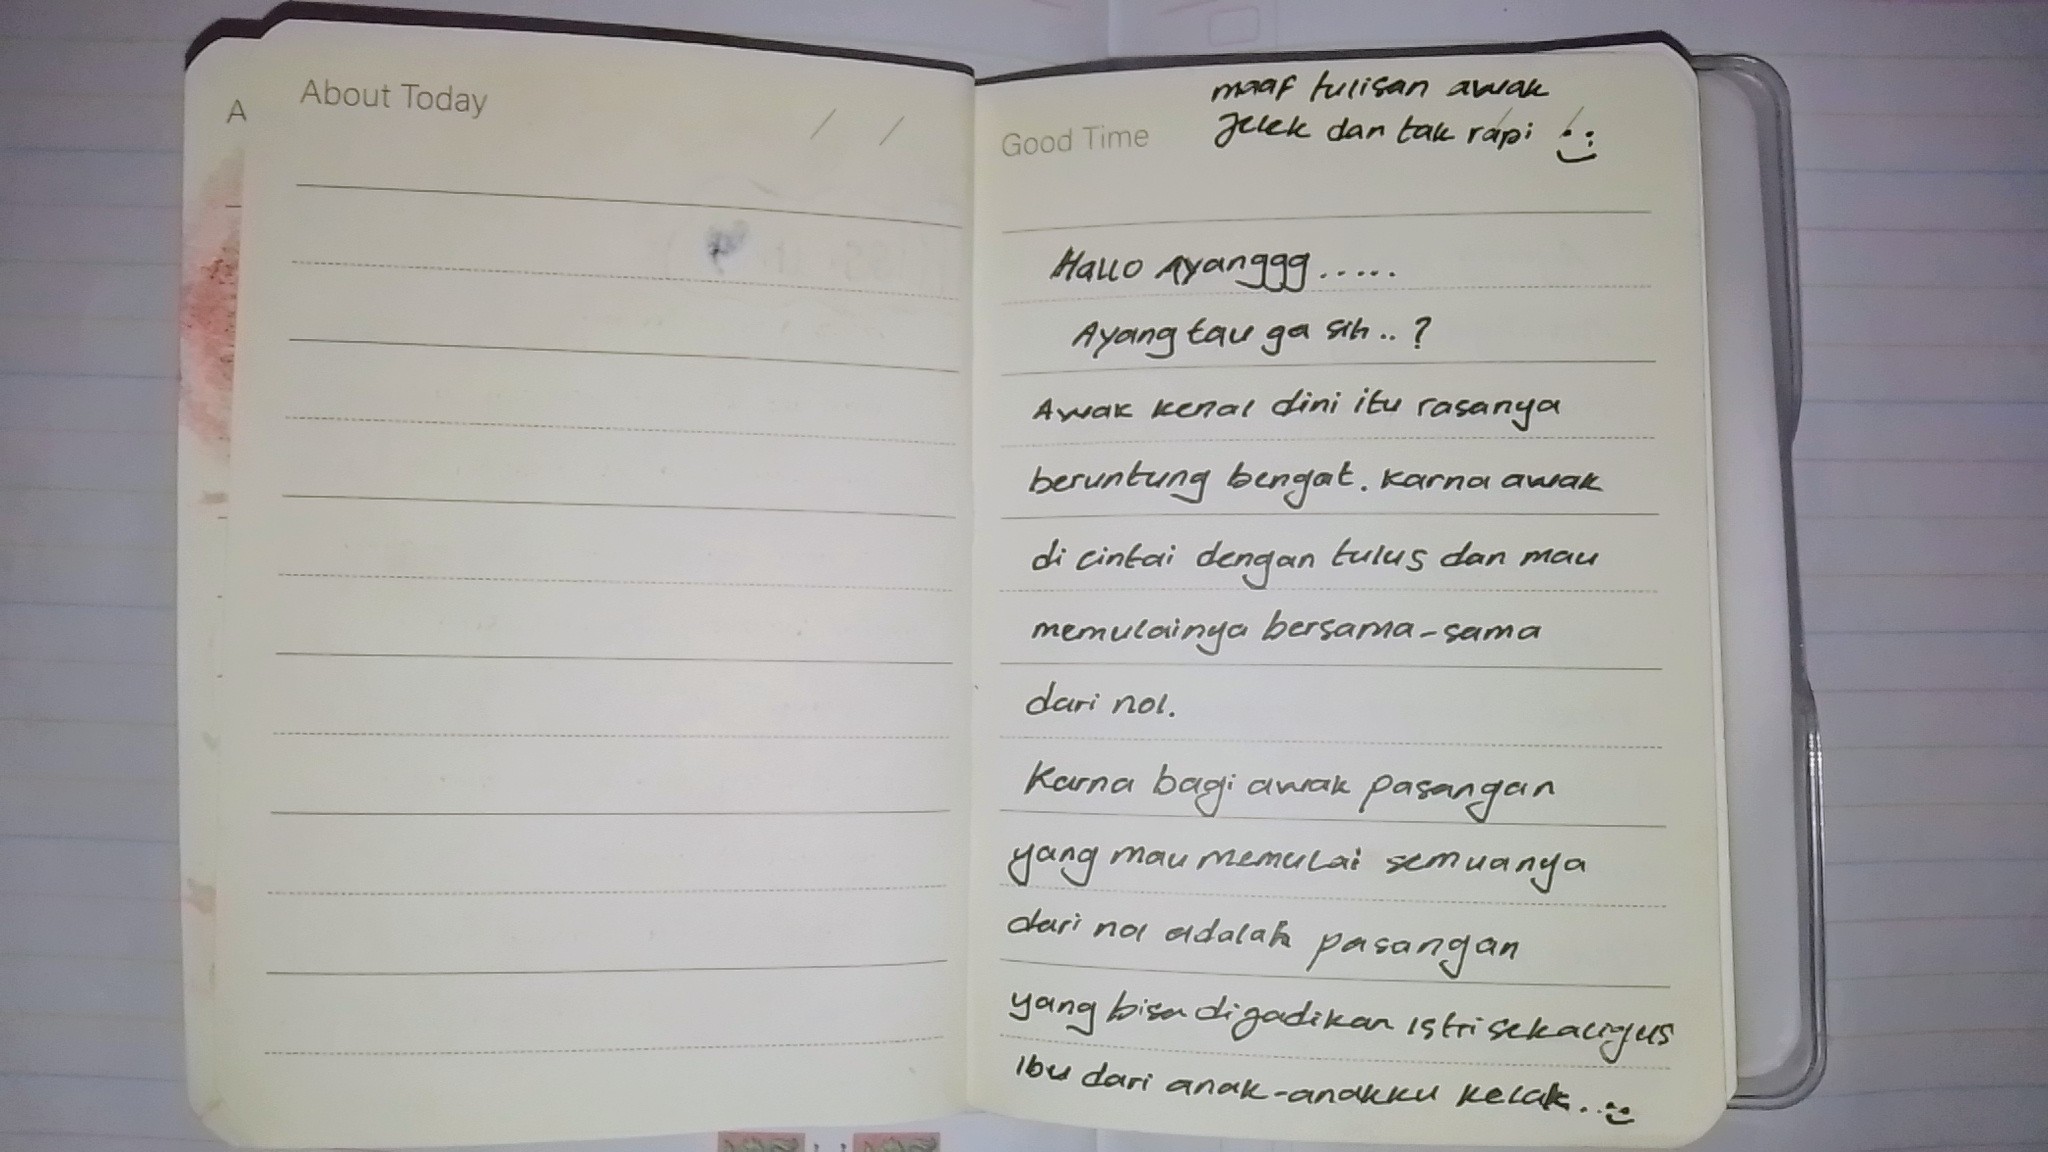 A
About Today
/ /
Good Time
maaf tulisan awak
jelek dan tak rapi
Hallo Ayanggg.....
Ayang tau ga sih..?
Awak kenal dini itu rasanya
beruntung bengat. Karna awak
di cintai dengan tulus dan mau
memulainya bersama-sama
dari nol.
Karna bagi awak pasangan
yang mau memulai semuanya
dari nol adalah pasangan
yang bisa dijadikan istri sekaligus
Ibu dari anak-anakku kelak..